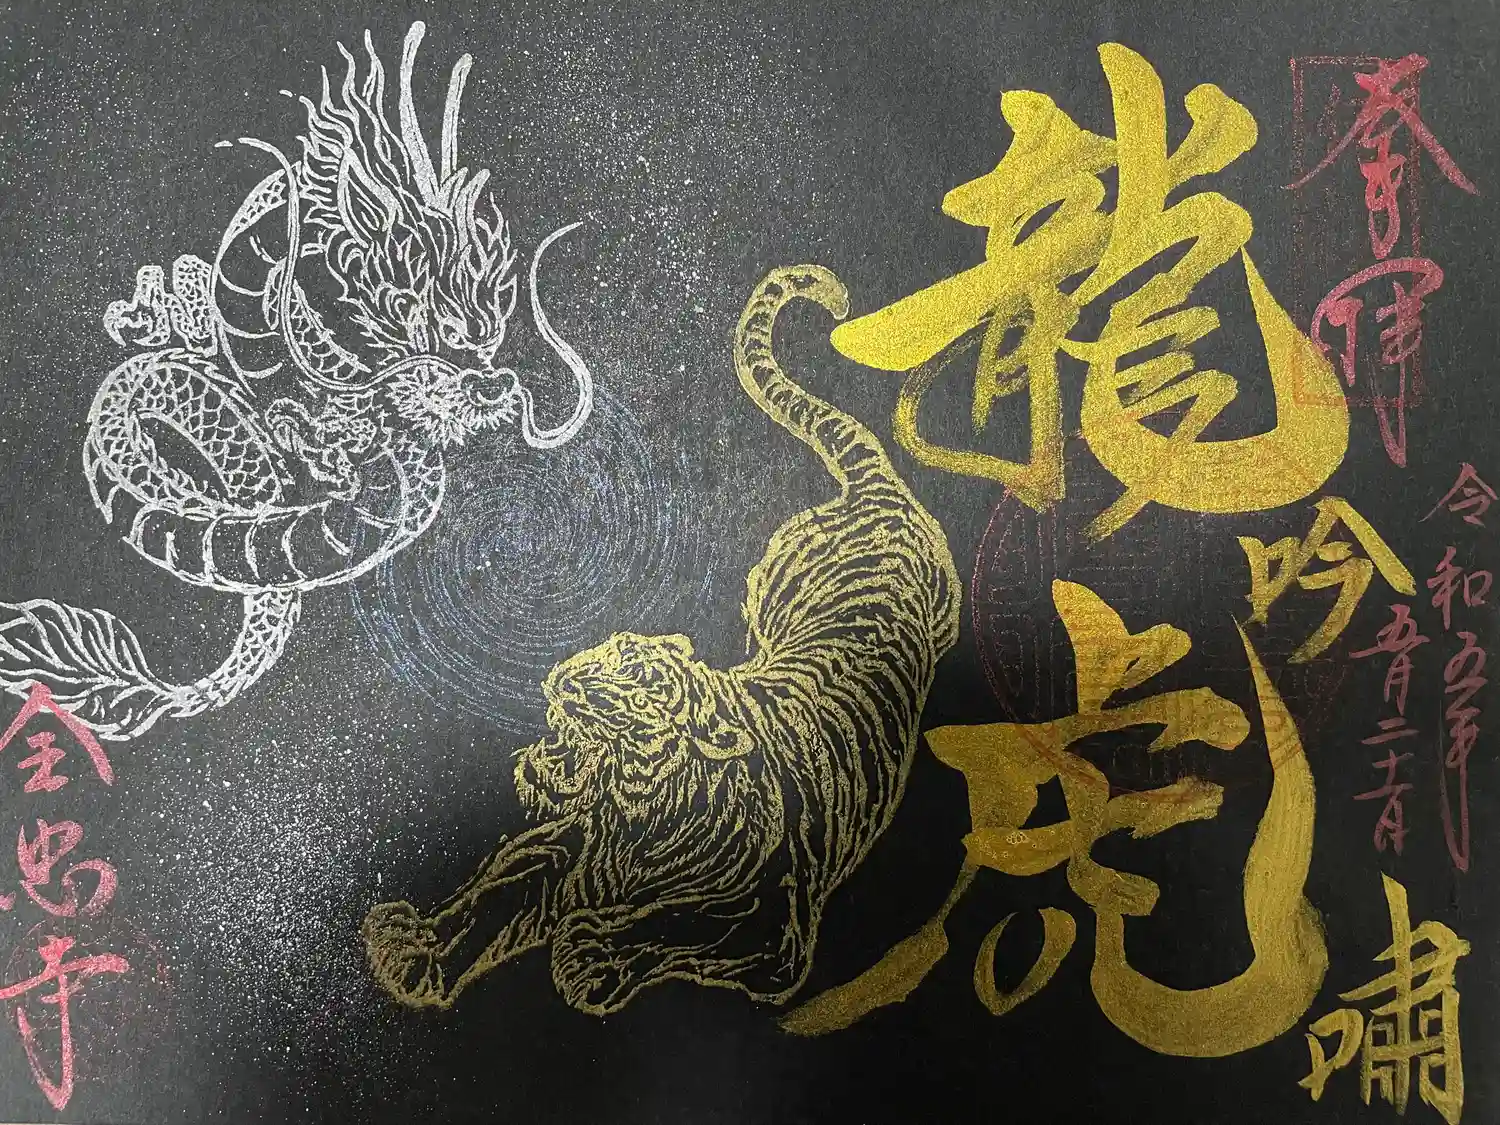 奉拝
令和五年
五月二十六日
龍吟
虎嘯
全忠寺